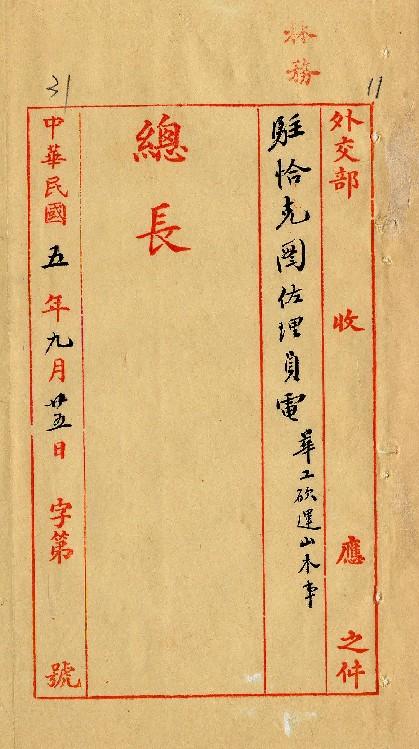 林務
外交部 收 應 之件
駐恰克圖佐理員電 華工砍運山木事
總長
中華民國五年九月廿五日 字第 號
11
31